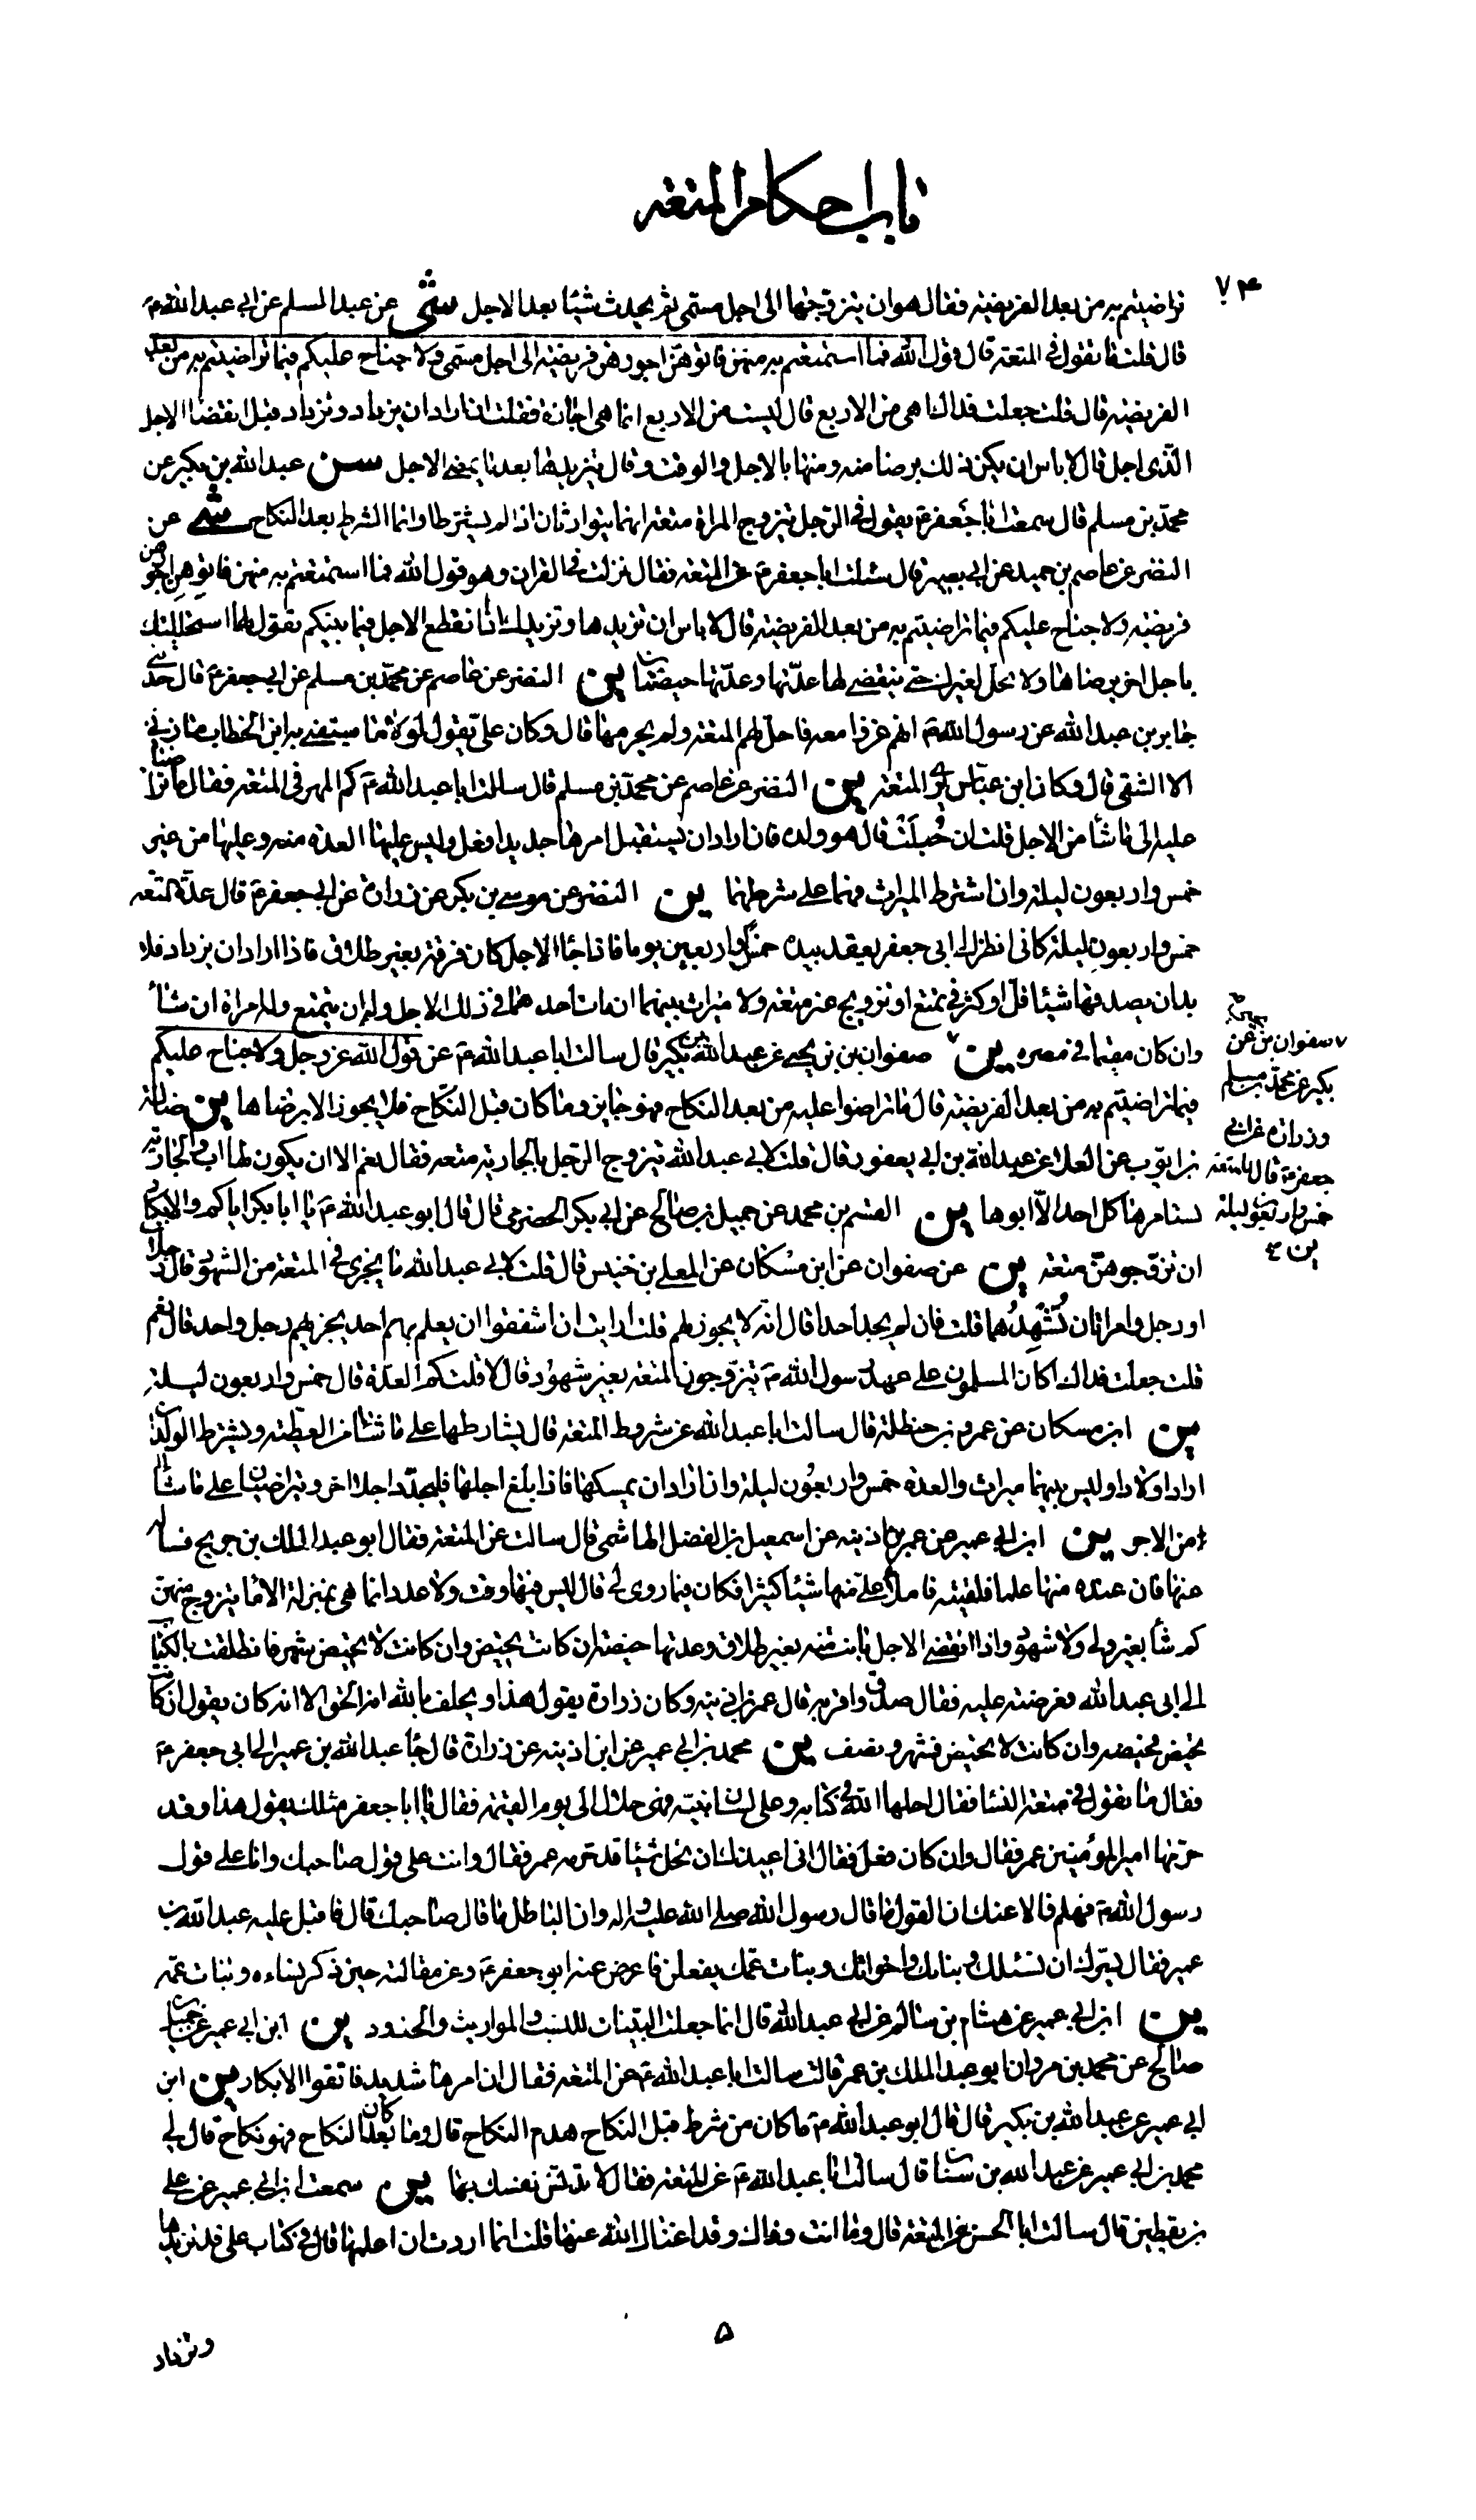 باب احكام المتعه
٧۴
تراضيتم به من بعد الفريضه فقال هو ان يتزوجها الى اجل مسمى ثم يحدث شيئا بعد الاجل شى عن عبد السلم عن ابى عبد الله ع
قال قلت ما تقول فى المتعه قال قول الله فما استمتعتم به منهن فاتوهن اجورهن فريضه الى اجل مسمى ولا جناح عليكم فيما تراضيتم به من بعد
الفريضه قال قلت جعلت فداك اهى من الاربع قال ليست من الاربع انما هى اجارة فقلت ان اراد ان يزداد وتزداد قبل انقضا الاجل
الذى اجل قال لا باس ان يكن ذلك برضا منه ومنها بالاجل والوقت وقال يزيدها بعد ما يمضى الاجل سن عبد الله بن بكير عن
محمد بن مسلم قال سمعت ابا جعفر ع يقول فى الرجل يتزوج المراة متعه انهما يتوارثان اذا لم يشترطا وانما الشرط بعد النكاح شى عن
النضر عن عاصم بن حميد عن ابى بصير قال سئلت ابا جعفر ع عن المتعه فقال نزلت فى القران وهو قول الله فما استمتعتم به منهن فاتوهن اجورهن
فريضه ولا جناح عليكم فيما تراضيتم به من بعد الفريضه قال لا باس ان تزيدها وتزيدك اذا انقطع الاجل فيما بينكم تقول لها استحللتك
باجل اخر برضاها ولا يحل لغيرك حتى ينقضى لها عدتها وعدتها حيضتان ين النضر عن عاصم عن محمد بن مسلم عن ابى جعفر ع قال حدثنى
جابر بن عبد الله عن رسول الله ص انهم غزوا معه فاحل لهم المتعه ولم يحرمها قال وكان على يقول لولا ما سبقنى به ابن الخطاب ما زنى
الا الشقى قال وكان ابن عباس يرى المتعه ين النضر عن عاصم عن محمد بن مسلم قال سالت ابا عبد الله ع كم المهر فى المتعه فقال ما تراضيا
عليه الى ما شأا من الاجل قلت ان حُبلَتْ قال هو ولده فان اراد ان يستقبل امرها جديدا فعل وليس عليها العده منه وعليها من غيره
خمس واربعون ليلة وان اشترط الميراث فهما على شرطهما ين النضر عن موسى بن بكر عن زرارة عن ابى جعفر ع قال عدة المتعه
خمس واربعون ليلة كانى انظر الى ابى جعفر يعقد بيده خمس واربعين يوما فاذا جا الاجل كان فرقة بغير طلاق فاذا اراد ان يزداد فلا
بد ان يصدقها شيئا قل او كثر فى تمتع او تزويج عنه متعه ولا ميراث بينهما ان مات احدهما فى ذلك الاجل وله ان يتمتع وله امراة ان شاء
وان كان مقيما فى مصره ين صفوان بن يحيى عن عبد الله بن بكير قال سالت ابا عبد الله ع عن قول الله عز وجل ولا جناح عليكم
فيما تراضيتم به من بعد الفريضه قال ما تراضوا عليه من بعد النكاح فهو جايز وما كان قبل النكاح فلا يجوز الا برضاها ين فضالة
بن ايوب عن العلا عن عبد الله بن ابى يعفور قال قلت لابى عبد الله يتزوج الرجل بالجاريه متعه فقال نعم الا ان يكون لها اب والجاريه
تستامرها كل احد الا ابوها ين القسم بن محمد عن جميل بن صالح عن ابى بكر الحضرمى قال قال ابو عبد الله ع يا ابا بكر اياكم والابكار
ان تزوجوهن متعه ين عن صفوان عن ابن مسكان عن المعلى بن خنيس قال قلت لابى عبد الله ما يجزى فى المتعه من الشهود قال رجلان
او رجل وامراتان تُشهِدُهما قلت فان لم يجد احدا قال انه لا يجوز لهم قلت ارايت ان اشفقوا ان يعلم بهم احد يجزيهم رجل واحد قال نعم
قلت جعلت فداك اكان المسلمون على عهد رسول الله ص يتزوجون المتعه بغير شهود قال لا قلت كم العدة قال خمس واربعون ليلة
ين ابن مسكان عن عمرو بن حنظلة قال سالت ابا عبد الله عن شروط المتعه قال يشارطها على ما شاء من العطية ويشترط الولد ان
اراد اولادا وليس بينهما ميراث والعده خمس واربعون ليلة وان اراد ان يمسكها فاذا بلغ اجلها فليجدد اجلا اخر ويتراضيان على ما شاء
من الاجر ين ابن ابى عمير عن عمر بن اذينه عن اسمعيل بن الفضل الهاشمى قال سالت عن المتعه فقال ابو عبد الملك بن جريج فساله
عنها فان عنده منها علما فلقيته فاملا على منها شيئا كثيرا فكان فيما روى لى قال ليس فيها وقت ولا عدد انما هى بمنزلة الاما يتزوج منهن
كم شأ بغير ولى ولا شهود واذا انقضى الاجل بانت منه بغير طلاق وعدتها حيضة ان كانت تحيض وان كانت لا تحيض شهر فانطلقت بالكتاب
الى ابى عبد الله فعرضته عليه فقال صدق واقر به قال عمر بن اذينه وكان زرارة يقول هذا ويحلف بالله انه الحق الا انه كان يقول ان كانت
تحيض فحيضه وان كانت لا تحيض فشهر ونصف ين محمد بن ابى عمير عن ابن اذينه عن زرارة قال جا عبد الله بن عمير الى ابى جعفر ع
فقال ما تقول فى متعه النسا فقال احلها الله فى كتابه وعلى لسان نبيه فهى حلال الى يوم القيمه فقال يا ابا جعفر مثلك يقول هذا وقد
حرمها امير المؤمنين عمر فقال وان كان فعل فقال انى اعيذك ان تحل شيئا قد حرمه عمر فقال وانت على قول صاحبك وانا على قول
رسول الله ص فهلم فالاعنك ان القول ما قال رسول الله صلى الله عليه واله وان الباطل ما قال صاحبك قال فاقبل عليه عبد الله بن
عمير فقال يسرك ان نسائك وبناتك واخواتك وبنات عمك يفعلن فاعرض عنه ابو جعفر ع وعن مقالته حين ذكر نساءه وبنات عمه
ين ابن ابى عمير عن هشام بن سالم عن ابى عبد الله قال انما جعلت البينات للنسب والمواريث والحدود ين ابن ابى عمير عن جميل بن
صالح عن محمد بن مروان ابو عبد الملك بن عمر قال سالت ابا عبد الله ع عن المتعه فقال ان امرها شديد فاتقوا الابكار ين ابن
ابى عمير عن عبد الله بن بكير قال قال ابو عبد الله ع ما كان من شرط قبل النكاح هدم النكاح قال وما كان بعد النكاح فهو نكاح قال لى
محمد بن ابى عمير عن عبد الله بن سنان قال سالت ابا عبد الله ع عن المتعه فقال لا تدنس نفسك بها ين سمعت ابن ابى عمير عن على
بن يقطين قال سالت ابا الحسن عن المتعه قال وما انت وذاك وقد اغناك الله عنها قلت انما اردت ان اعلمها قال فى كتاب على قد تزيدها
وتزداد
۵
صفوان بن عن
بكير عن محمد بن مسلم
وزراره عن ابى
جعفر ع قال المتعه
خمس واربعون ليلة
ين